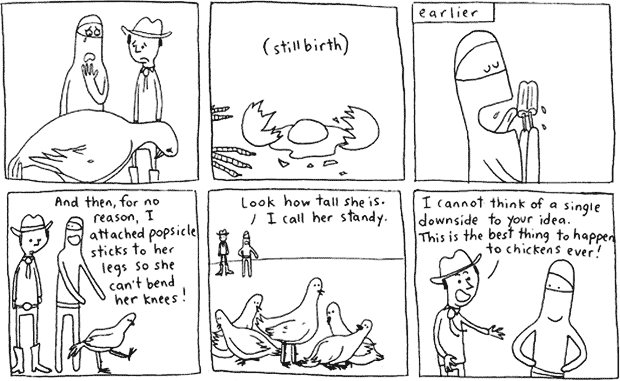 (stillbirth)
earlier
And then, for no
reason, I
attached popsicle
sticks to her
legs so she
can't bend
her knees!
Look how tall she is.
I call her standy.
I cannot think of a single
downside to your idea.
This is the best thing to happen
to chickens ever!